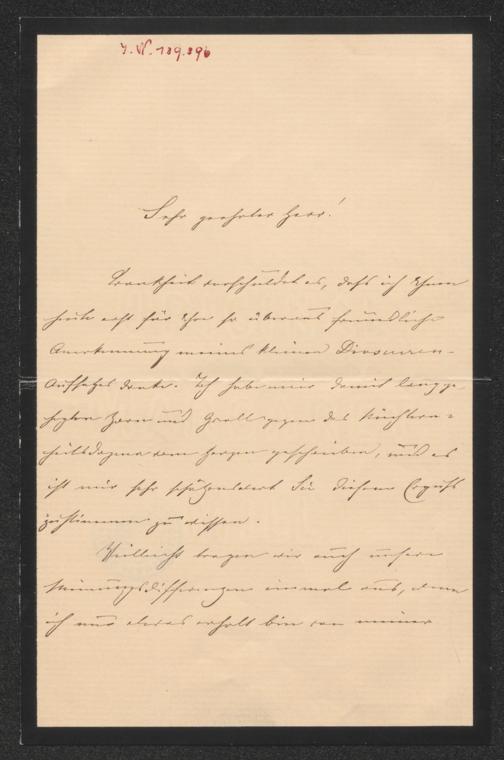 I. N. 189.896
Sehr geehrter Herr!
Krankheit verschuldet es, daſs ich Ihnen
heute erst für Ihre so überaus freundliche
Anerkennung meines kleinen Dioscuren-
Aufsatzes danke. Ich habe mir damit lang ge
hegten Zorn und Groll gegen das Nüchtern=
heitsdogma vom Herzen geschrieben, und es
ist mir sehr schätzenswert Sie diesem Erguſs
zustimmen zu wissen.
Vielleicht tragen wir auch unsere
Meinungsdifferenzen einmal aus, wenn
ich nur etwas erholt bin von meiner